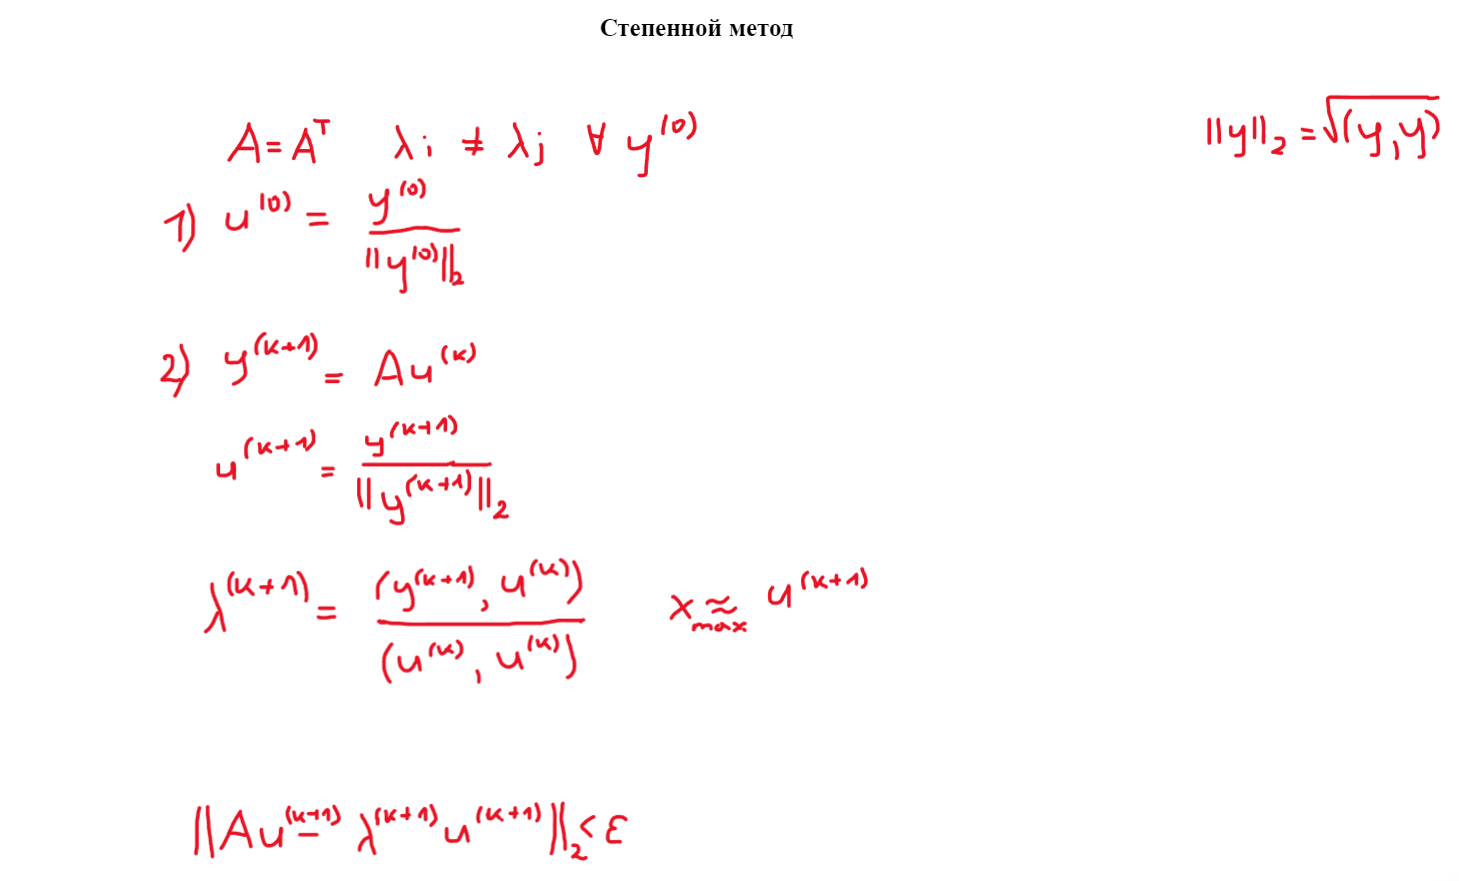 Степенной метод
A = A^T λi ≠ λj ∀ y^(0) ||y||_2 = √(y, y)
1) u^(0) = y^(0) / ||y^(0)||_2
2) y^(k+1) = A u^(k)
u^(k+1) = y^(k+1) / ||y^(k+1)||_2
λ^(k+1) = (y^(k+1), u^(k)) / (u^(k), u^(k)) x_max ≈ u^(k+1)
||A u^(k+1) - λ^(k+1) u^(k+1)||_2 < ε